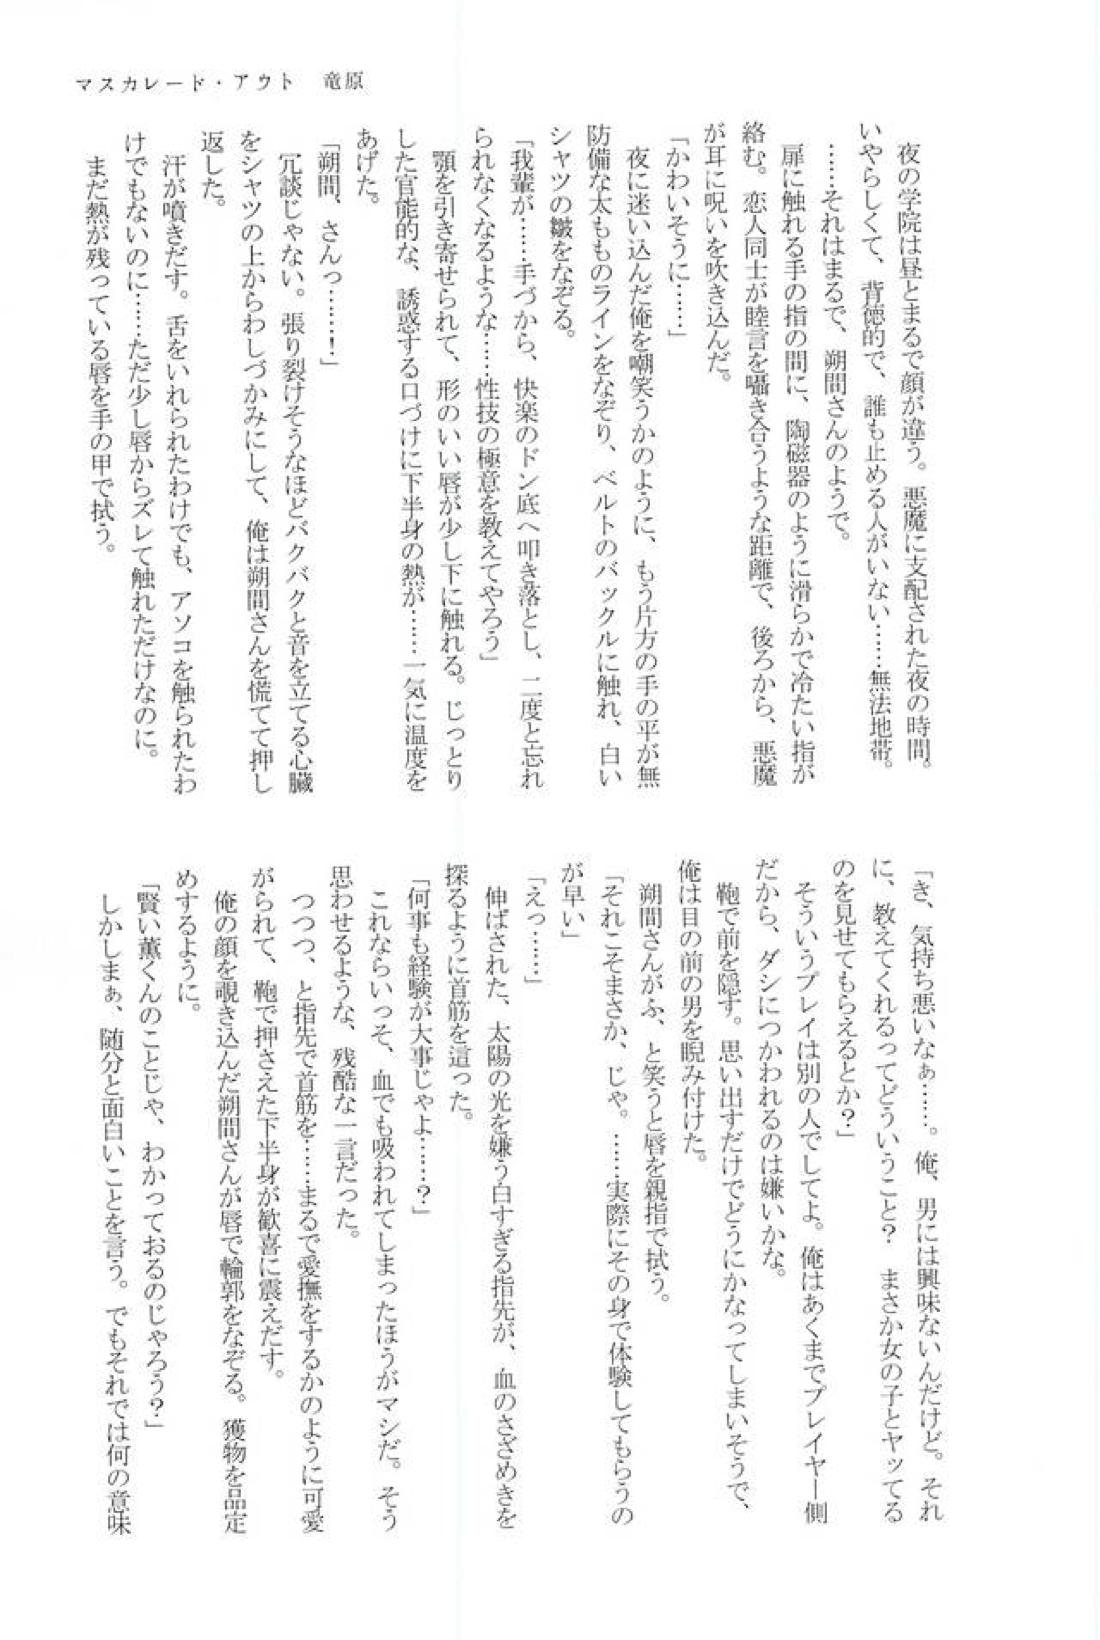 マスカレード・アウト　竜原
夜の学院は昼とまるで顔が違う。悪魔に支配された夜の時間。
いやらしくて、背徳的で、誰も止める人がいない……無法地帯。
……それはまるで、朔間さんのようで。
扉に触れる手の指の間に、陶磁器のように滑らかで冷たい指が
絡む。恋人同士が睦言を囁き合うような距離で、後ろから、悪魔
が耳に呪いを吹き込んだ。
「かわいそうに……」
夜に迷い込んだ俺を嘲笑うかのように、もう片方の手の平が無
防備な太もものラインをなぞり、ベルトのバックルに触れ、白い
シャツの皺をなぞる。
「我輩が……手づから、快楽のドン底へ叩き落とし、二度と忘れ
られなくなるような……性技の極意を教えてやろう」
顎を引き寄せられて、形のいい唇が少し下に触れる。じっとり
した官能的な、誘惑する口づけに下半身の熱が……一気に温度を
あげた。
「朔間、さんっ………！」
冗談じゃない。張り裂けそうなほどバクバクと音を立てる心臓
をシャツの上からわしづかみにして、俺は朔間さんを慌てて押し
返した。
汗が噴きだす。舌をいれられたわけでも、アソコを触られたわ
けでもないのに……ただ少し唇からズレて触れただけなのに。
まだ熱が残っている唇を手の甲で拭う。
「き、気持ち悪いなぁ……。俺、男には興味ないんだけど。それ
に、教えてくれるってどういうこと？　まさか女の子とヤッてる
のを見せてもらえるとか？」
そういうプレイは別の人でしてよ。俺はあくまでプレイヤー側
だから、ダシにつかわれるのは嫌いかな。
鞄で前を隠す。思い出すだけでどうにかなってしまいそうで、
俺は目の前の男を睨み付けた。
朔間さんがふ、と笑うと唇を親指で拭う。
「それこそまさか、じゃ。……実際にその身で体験してもらうの
が早い」
「えっ……」
伸ばされた、太陽の光を嫌う白すぎる指先が、血のさざめきを
探るように首筋を這った。
「何事も経験が大事じゃよ……？」
これならいっそ、血でも吸われてしまったほうがマシだ。そう
思わせるような、残酷な一言だった。
つつつ、と指先で首筋を……まるで愛撫をするかのように可愛
がられて、鞄で押さえた下半身が歓喜に震えだす。
俺の顔を覗き込んだ朔間さんが唇で輪郭をなぞる。獲物を品定
めするように。
「賢い薫くんのことじゃ、わかっておるのじゃろう？」
しかしまぁ、随分と面白いことを言う。でもそれでは何の意味